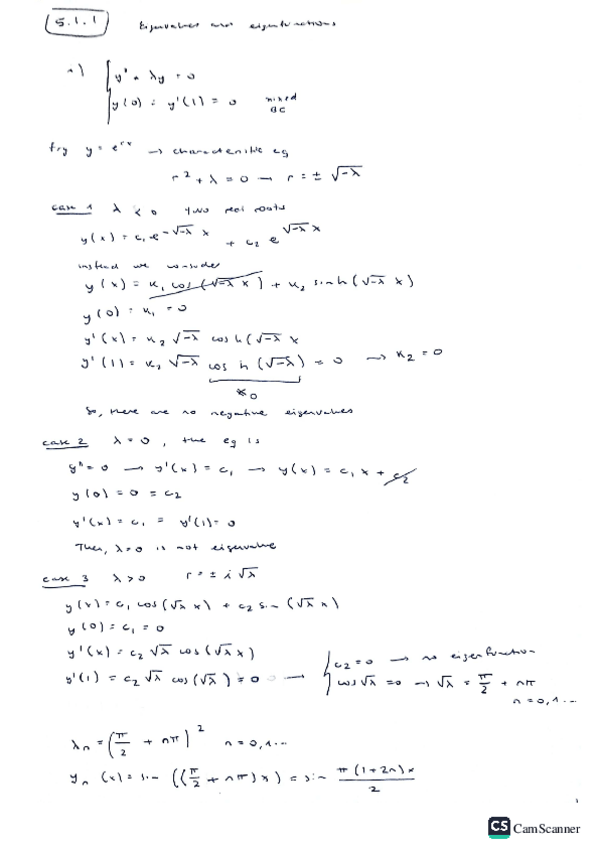 5.1.1 Eigenvalues and eigenfunctions
a) { y" + λy = 0
y(0) = y'(1) = 0 mixed BC
try y = e^{rx} → characteristic eq
r² + λ = 0 → r = ± √-λ
case 1 λ < 0 two real roots
y(x) = c₁ e^{-√-λ x} + c₂ e^{√-λ x}
instead we consider
y(x) = k₁ cos(√-λ x) + k₂ sinh(√-λ x)
y(0) = k₁ = 0
y'(x) = k₂ √-λ cosh(√-λ x
y'(1) = k₂ √-λ cosh(√-λ) = 0 → k₂ = 0
≠0
So, there are no negative eigenvalues
case 2 λ = 0, the eq is
y" = 0 → y'(x) = c₁ → y(x) = c₁ x + c₂
y(0) = 0 = c₂
y'(x) = c₁ = y'(1) = 0
Then, λ=0 is not eigenvalue
case 3 λ > 0 r = ± i √λ
y(x) = c₁ cos(√λ x) + c₂ sin(√λ x)
y(0) = c₁ = 0
y'(x) = c₂ √λ cos(√λ x)
y'(1) = c₂ √λ cos(√λ) = 0 → { c₂ = 0 → no eigenfunction
cos √λ = 0 → √λ = π/2 + nπ
n = 0, 1...
λₙ = (π/2 + nπ)² n = 0, 1...
yₙ(x) = sin((π/2 + nπ) x) = sin π(1+2n)x/2
CS CamScanner